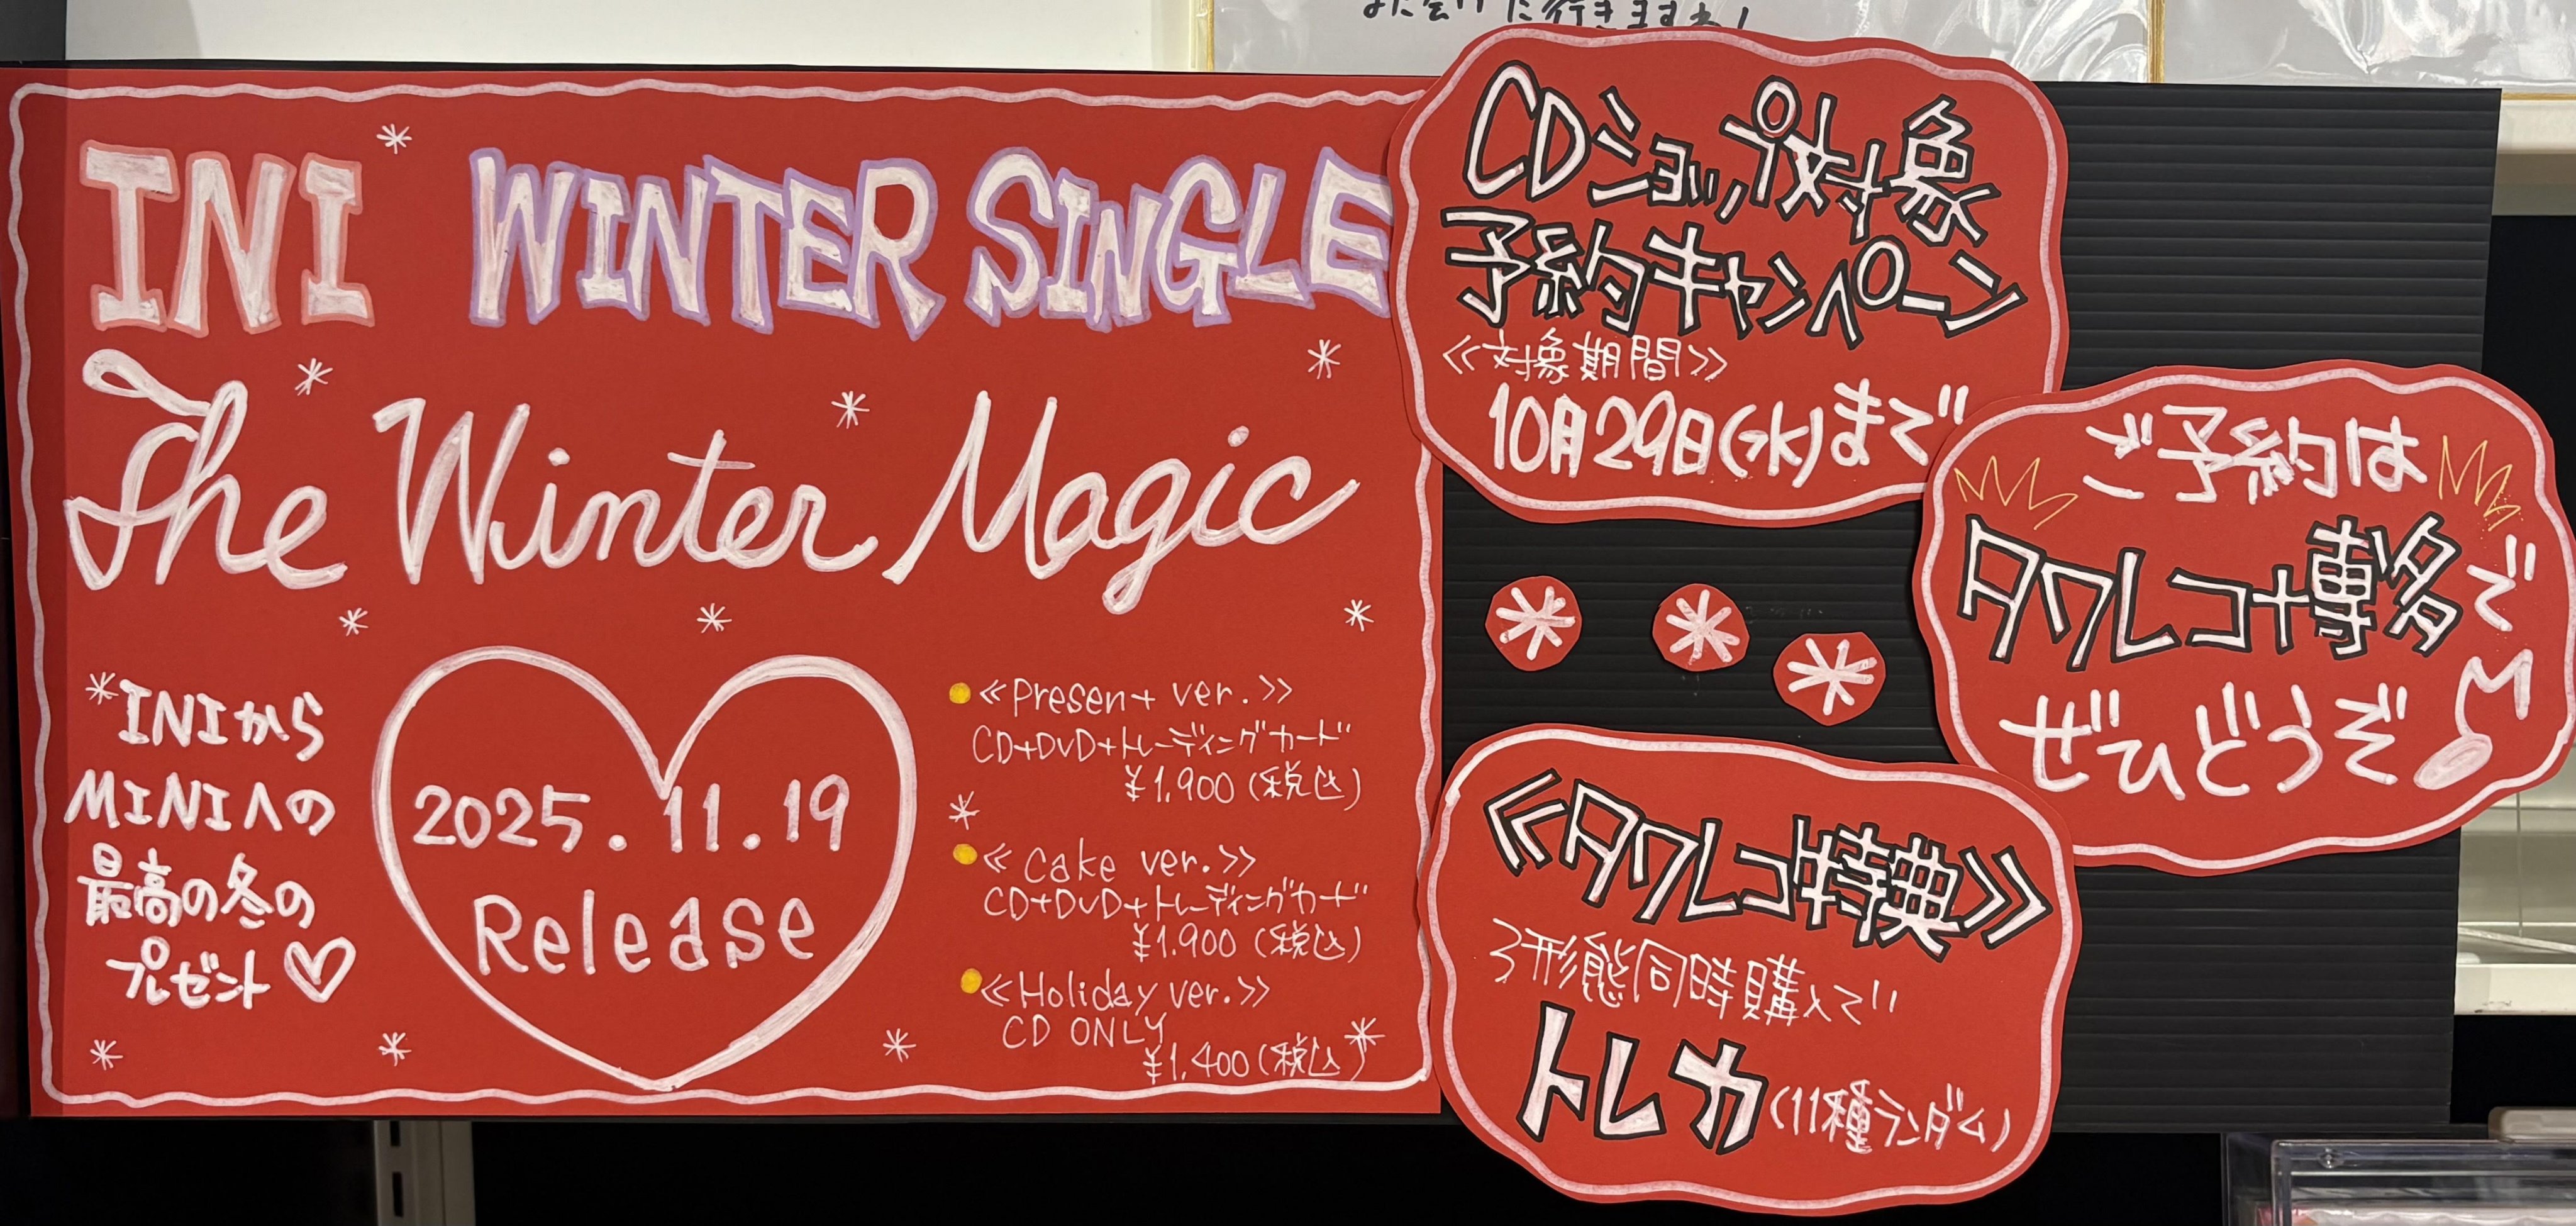 また会いに行きますね!
INI WINTER SINGLE
The Winter Magic
*INIから
MINIへの
最高の冬の
プレゼント♡
2025.11.19
Release
≪Present ver.≫
CD+DVD+トレーディングカード
¥1,900(税込)
≪Cake ver.≫
CD+DVD+トレーディングカード
¥1.900(税込)
≪Holiday ver.≫
CD ONLY
¥1.400(税込)
CDショップ対象
予約キャンペーン
≪対象期間≫
10月29日(水)まで
ご予約は
タワレコ博多で
ぜひどうぞ♪
≪タワレコ特典≫
3形態同時購入で
トレカ(11種ランダム)